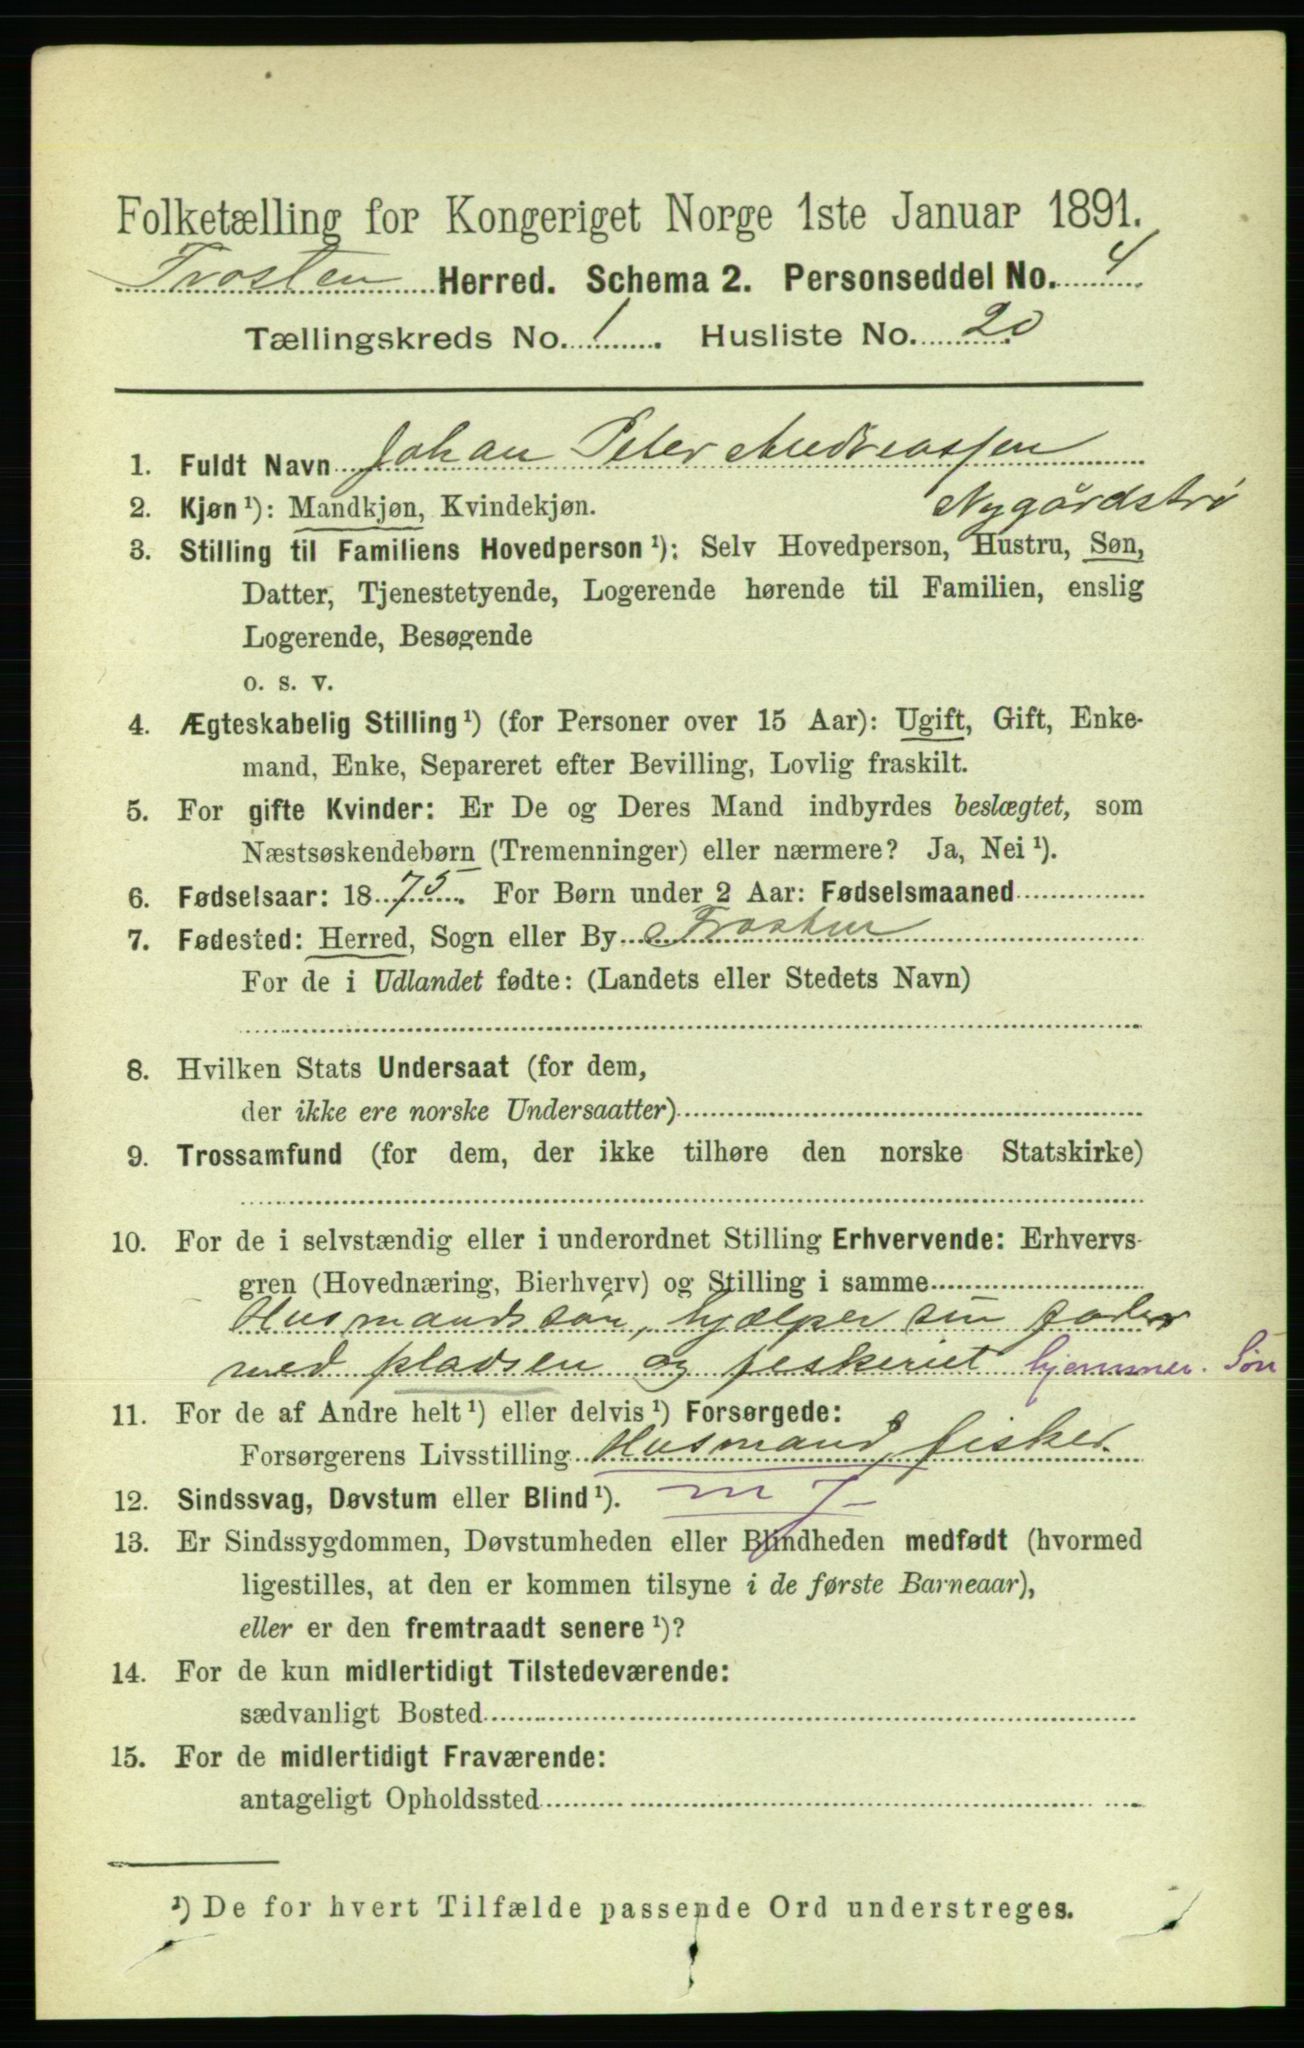 Folketælling for Kongeriget Norge 1ste Januar 1891.
Frosten Herred. Schema 2. Personseddel No. 4
Tællingskreds No. 1. Husliste No. 20
1. Fuldt Navn Johan Peter Andreassen
Nygårdstrø
2. Kjøn¹): Mandkjøn, Kvindekjøn.
3. Stilling til Familiens Hovedperson¹): Selv Hovedperson, Hustru, Søn,
Datter, Tjenestetyende, Logerende hørende til Familien, enslig
Logerende, Besøgende
o. s. v.
4. Ægteskabelig Stilling¹) (for Personer over 15 Aar): Ugift, Gift, Enke-
mand, Enke, Separeret efter Bevilling, Lovlig fraskilt.
5. For gifte Kvinder: Er De og Deres Mand indbyrdes beslægtet, som
Næstsøskendebørn (Tremenninger) eller nærmere? Ja, Nei¹).
6. Fødselsaar: 1875. For Børn under 2 Aar: Fødselsmaaned
7. Fødested: Herred, Sogn eller By Frosten
For de i Udlandet fødte: (Landets eller Stedets Navn)
8. Hvilken Stats Undersaat (for dem,
der ikke ere norske Undersaatter)
9. Trossamfund (for dem, der ikke tilhøre den norske Statskirke)
10. For de i selvstændig eller i underordnet Stilling Erhvervende: Erhvervs-
gren (Hovednæring, Bierhverv) og Stilling i samme
Husmandssøn, hjælper sin fader
med pladsen og feskeriet hjemmev. Søn
11. For de af Andre helt¹) eller delvis¹) Forsørgede:
Forsørgerens Livsstilling Husmand, fisker.
12. Sindssvag, Døvstum eller Blind¹).
13. Er Sindssygdommen, Døvstumheden eller Blindheden medfødt (hvormed
ligestilles, at den er kommen tilsyne i de første Barneaar),
eller er den fremtraadt senere¹)?
14. For de kun midlertidigt Tilstedeværende:
sædvanligt Bosted
15. For de midlertidigt Fraværende:
antageligt Opholdssted
¹) De for hvert Tilfælde passende Ord understreges.